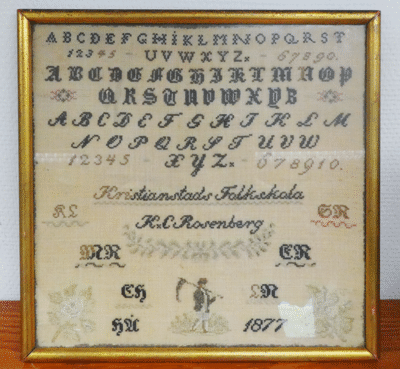 ABCDEFGHIKLMNOPQRST
12345 - UVWXYZ. - 67890.
ABCDEFGHIKLMNOP
QRSTUVWXYZ
ABCDEFGHIKLM
NOPQRSTUVW
12345 - XYZ. - 678910.
Kristianstads Folkskola
KL
GR
K.C.Rosenberg
MR
CR
CH
LR
HA
1877